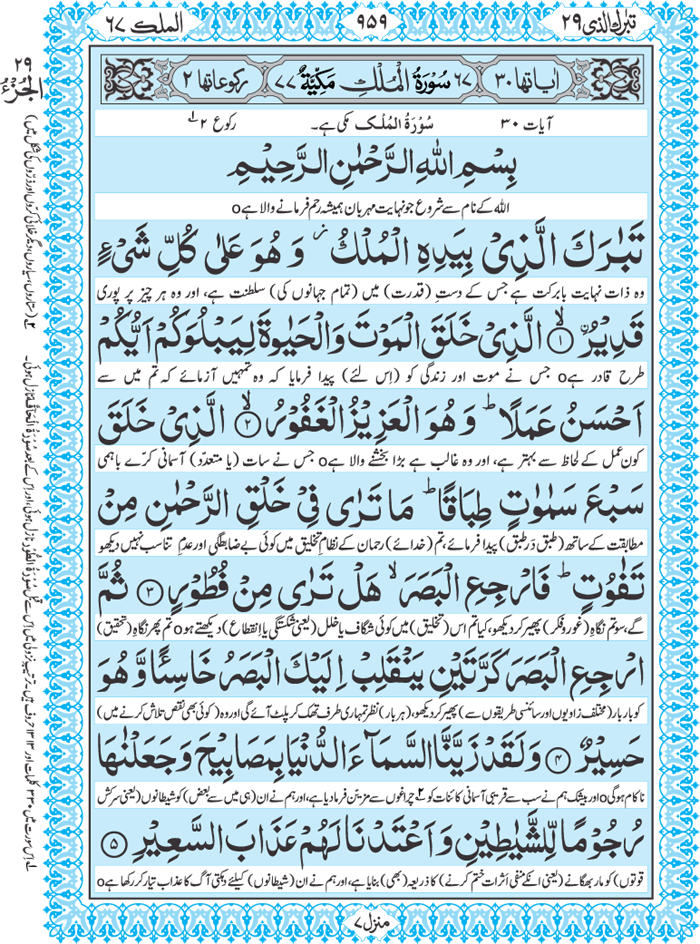 تبٰرك الذی ٢٩
٩٥٩
الملك ٦٧
اٰیاتها ٣٠
٦٧ سُوْرَةُ الْمُلْكِ مَكِّیَّةٌ ٧٧
رکوعاتها ٢
آیات ٣٠
سُوْرَةُ الْمُلْك مکی ہے۔
رکوع ٢
بِسْمِ اللهِ الرَّحْمٰنِ الرَّحِیْمِ
اللہ کے نام سے شروع جو نہایت مہربان ہمیشہ رحم فرمانے والا ہےo
تَبٰرَكَ الَّذِیْ بِیَدِهِ الْمُلْكُ ز وَ هُوَ عَلٰی كُلِّ شَیْءٍ
وہ ذات نہایت بابرکت ہے جس کے دستِ (قدرت) میں (تمام جہانوں کی) سلطنت ہے، اور وہ ہر چیز پر پوری
قَدِیْرُ ۙ﴿١﴾ الَّذِیْ خَلَقَ الْمَوْتَ وَ الْحَیٰوةَ لِیَبْلُوَكُمْ اَیُّكُمْ
طرح قادر ہےo جس نے موت اور زندگی کو (اِس لئے) پیدا فرمایا کہ وہ تمہیں آزمائے کہ تم میں سے
اَحْسَنُ عَمَلًا ؕ وَ هُوَ الْعَزِیْزُ الْغَفُوْرُ ۙ﴿٢﴾ الَّذِیْ خَلَقَ
کون عمل کے لحاظ سے بہتر ہے، اور وہ غالب ہے بڑا بخشنے والا ہےo جس نے سات (یا متعدّد) آسمانی کرّے باہمی
سَبْعَ سَمٰوٰتٍ طِبَاقًا ؕ مَا تَرٰی فِیْ خَلْقِ الرَّحْمٰنِ مِنْ
مطابقت کے ساتھ (طبق دَر طبق) پیدا فرمائے، تم (خدائے) رحمان کے نظامِ تخلیق میں کوئی بے ضابطگی اور عدمِ تناسب نہیں دیکھو
تَفٰوُتٍ ؕ فَارْجِعِ الْبَصَرَ ۙ هَلْ تَرٰی مِنْ فُطُوْرٍ ﴿٣﴾ ثُمَّ
گے، سو تم نگاہِ (غور و فکر) پھیر کر دیکھو، کیا تم اس (تخلیق) میں کوئی شگاف یا خلل (یعنی شکستگی یا اِنقطاع) دیکھتے ہوo تم پھر نگاہِ (تحقیق)
ارْجِعِ الْبَصَرَ كَرَّتَیْنِ یَنْقَلِبْ اِلَیْكَ الْبَصَرُ خَاسِئًا وَّ هُوَ
کو بار بار (مختلف زاویوں اور سائنسی طریقوں سے) پھیر کر دیکھو، (ہر بار) نظر تمہاری طرف تھک کر پلٹ آئے گی اور وہ (کوئی بھی نقص تلاش کرنے میں)
حَسِیْرٌ ﴿٤﴾ وَ لَقَدْ زَیَّنَّا السَّمَآءَ الدُّنْیَا بِمَصَابِیْحَ وَ جَعَلْنٰهَا
ناکام ہوگیo اور بیشک ہم نے سب سے قریبی آسمانی کائنات کو ٢ چراغوں سے مزیّن فرما دیا ہے، اور ہم نے ان (ہی میں سے بعض) کو شیطانوں (یعنی سرکش
رُجُوْمًا لِّلشَّیٰطِیْنِ وَ اَعْتَدْنَا لَهُمْ عَذَابَ السَّعِیْرِ ﴿٥﴾
قوتوں) کو مار بھگانے (یعنی ان کے منفی اَثرات ختم کرنے) کا ذریعہ (بھی) بنایا ہے، اور ہم نے ان (شیطانوں) کیلئے دہکتی آگ کا عذاب تیار کر رکھا ہےo
منزل ٧
٢٩
الجُزْءُ